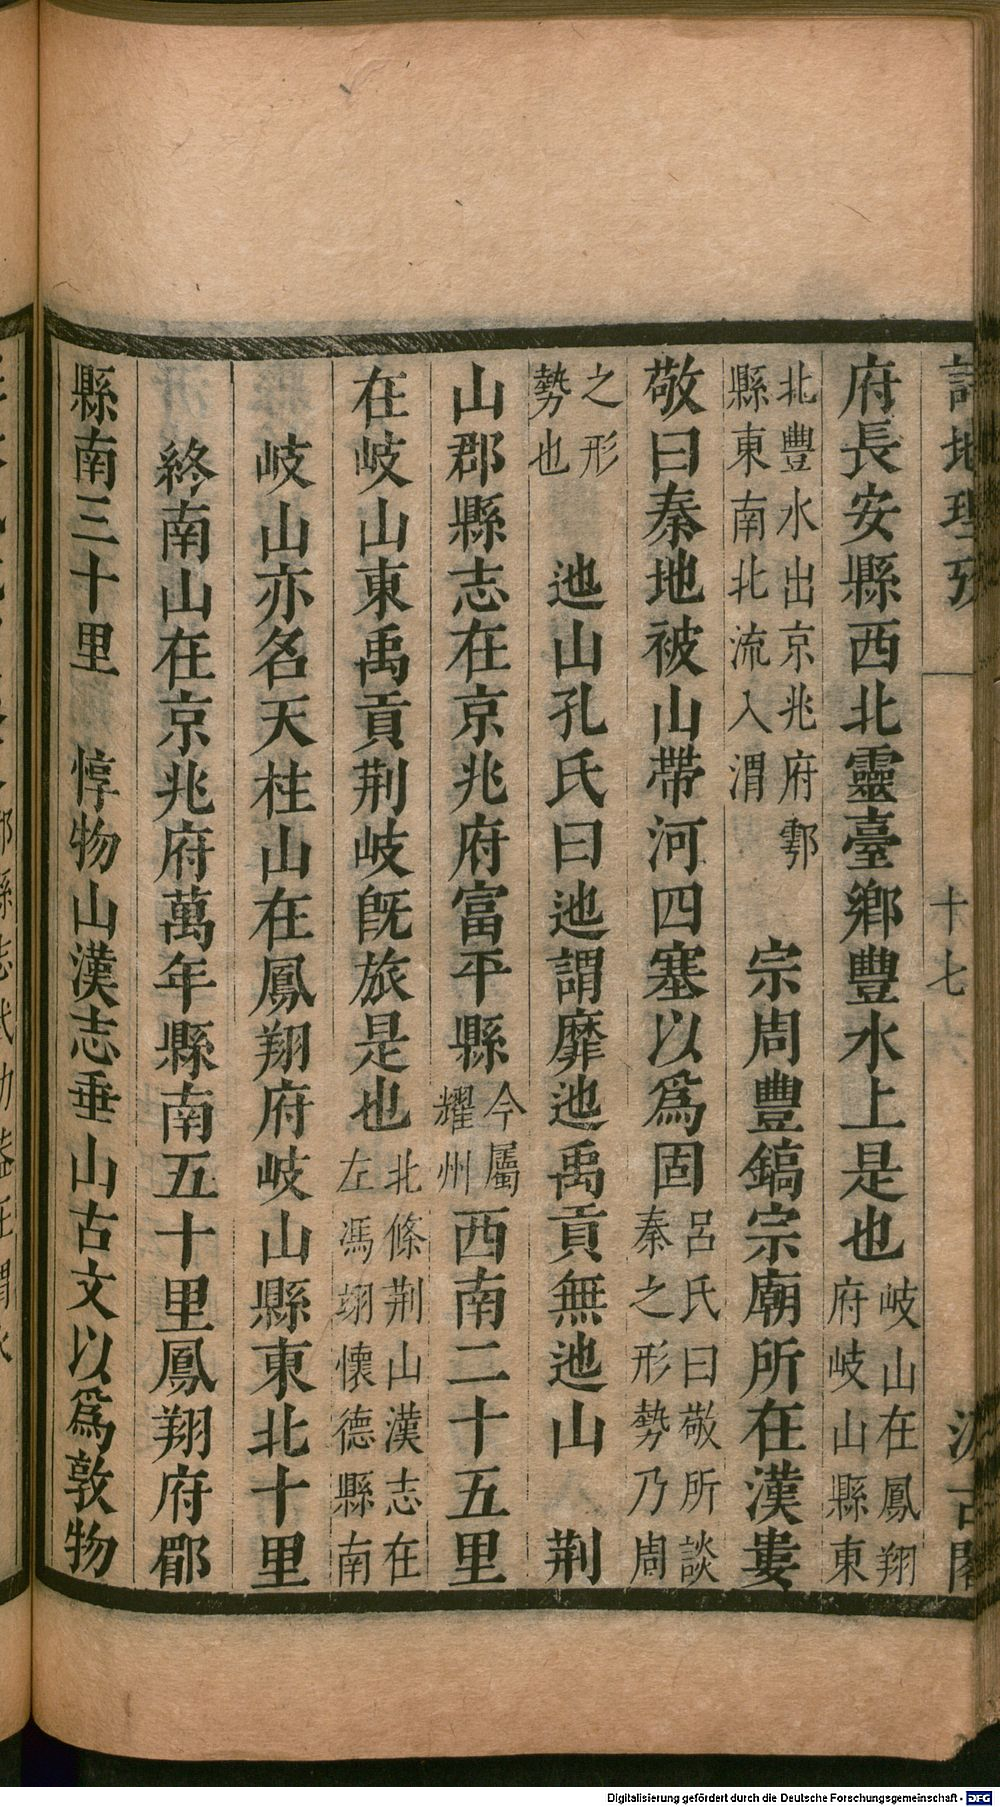 詩地理攷 十七 汲古閣
府長安縣西北靈臺鄉豐水上是也岐山在鳳翔府岐山縣東
北豐水出京兆府鄠縣東南北流入渭 宗周豐鎬宗廟所在漢婁
敬曰秦地被山帶河四塞以爲固呂氏曰敬所談秦之形勢乃周
之形勢也 迆山孔氏曰迆謂靡迆禹貢無迆山 荆
山郡縣志在京兆府富平縣今屬耀州西南二十五里
在岐山東禹貢荆岐旣旅是也北條荆山漢志在左馮翊懷德縣南
岐山亦名天柱山在鳳翔府岐山縣東北十里
終南山在京兆府萬年縣南五十里鳳翔府郿
縣南三十里 惇物山漢志垂山古文以爲敦物
Digitalisierung gefördert durch die Deutsche Forschungsgemeinschaft - DFG